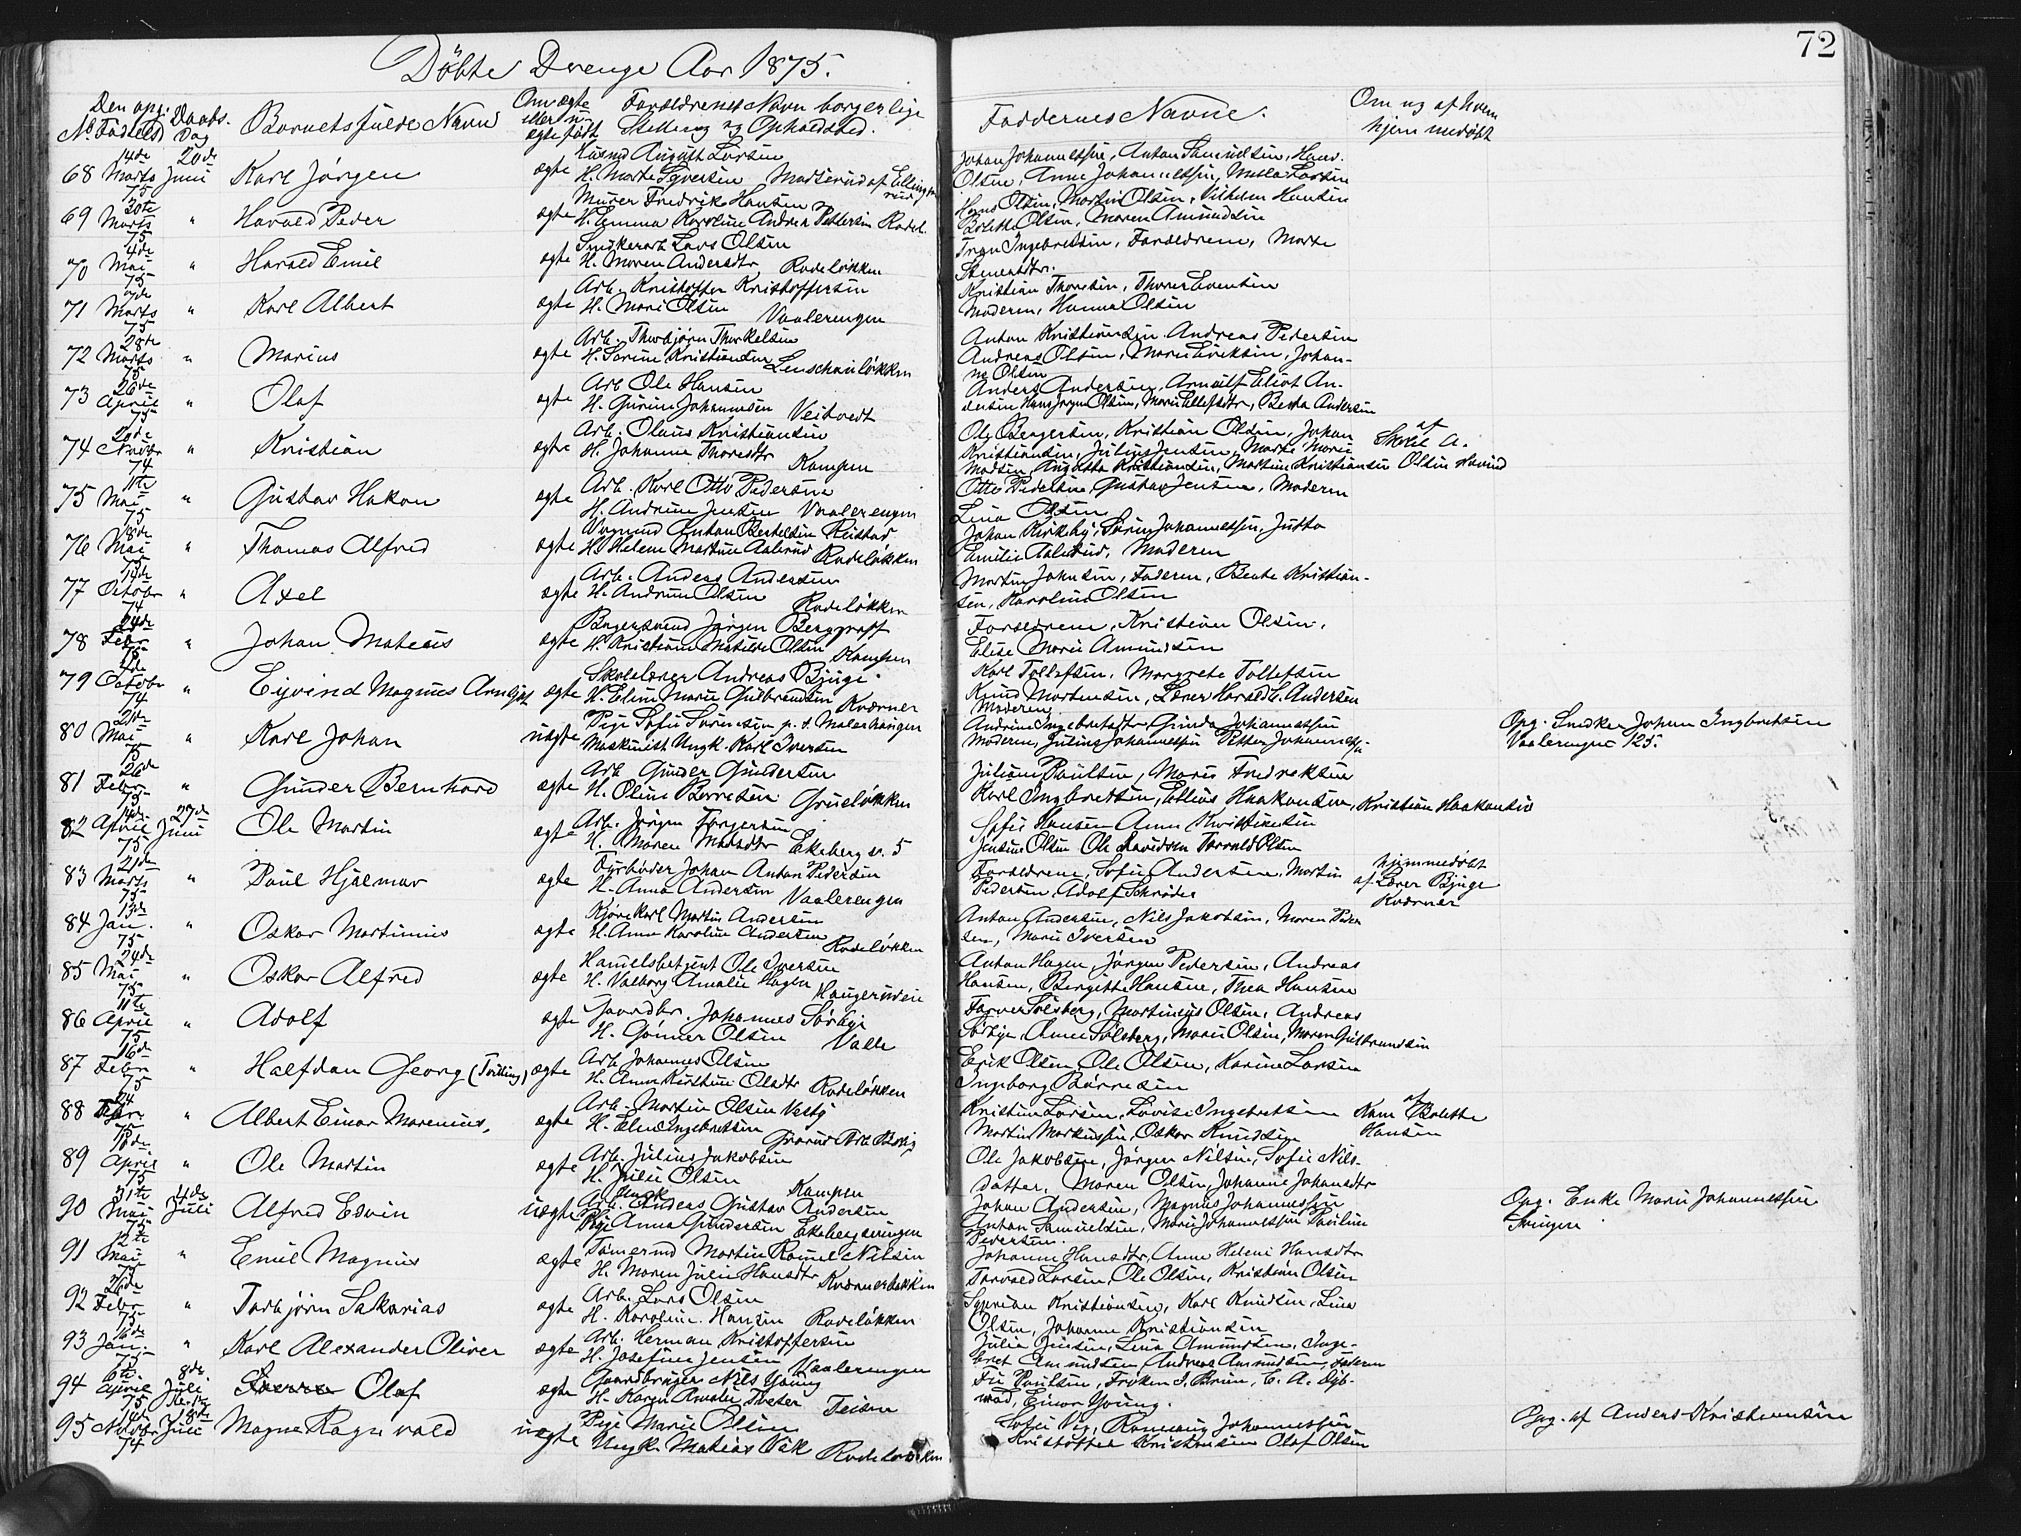 72
Döbte Drenge Aar 1875.
No Den opg. Födsels Daabs Dag Barnets fulde Navn Om ægte eller uægte födt Forældrenes Navn borgerlige Stilling og Opholdssted. Faddernes Navne. Om og af hvem hjemmedöbt
68 14de Marts 75 20de Juni Karl Jörgen ægte Husmd August Larsen
H. Marte Syversen
Johan Johannessen, Anton Samuelsen, Hans
Olsen, Anne Johannessen, Larsen
69 20te Marts 75 " Harald Peder ægte Murer Fredrik Hansen
H. Emma Karoline Andrea Pettersen Rodel.
Hans Olsen, Martin Olsen, Vilhelm Hansen
Bolette Olsen, Maren Amundsen
70 4de Mai 75 " Harald Emil ægte Snedkerarb Lars Olsen
H. Maren Andersdtr Rodeløkken
Ingebretsen, Forældrene, Marte
71 7de Marts 75 " Karl Albert ægte Arb. Kristoffer Kristoffersen
H. Mari Olsen Vaalerengen
Kristian Thoresen, Thorer Evensen
Moderen, Hanna Olsen
72 28de Marts 75 " Marius ægte Arb. Thorbjørn Thorkelsen
H. Sorine Kristiansen
Anton Kristiansen Andreas Pedersen
Andreas Olsen, Maren Eriksen, Johan-
ne Olsen
73 26de April 75 " Olaf ægte Arb Ole Hansen
H. Gurine Johannesen Veitvedt
Anders Andersen, Arnulf Eliot An-
dersen Hans Jörgen Olsen, Marie Ellefsdtr, Berta Andersen
74 20de Novbr 74 " Kristian ægte Arb. Olaus Kristiansen
H. Johanne Thoresdtr Kampen
Ole Bergersen, Kristian Olsen, Johan
Kristiansen, Julius Jensen, Marte Marie
Madsen, Augusta Kristiansen, Martin Kristiansen
75 11te Mai 75 " Gustav Hakon ægte Arb. Karl Otto Pedersen
H. Andrine Jensen Vaalerengen
Otto Pedersen, Gustav Jensen, Moderen
Lina Olsen
76 18de Mai 75 " Thomas Alfred ægte Vognmd Anton Bertelsen
H. Helene Martine Aalerud Rodeløkken
Johan Kirkeby, Sören Johannessen, Jutta
Emilie Aalerud, Moderen
77 14de Octobr 74 " Axel ægte Arb. Anders Andersen
H. Andrine Olsen Rodeløkken
Martin Johnsen, Faderen, Beate Kristian-
sen, Karoline Olsen
78 24de Febr 75 " Johan Mateus ægte Bagersvend Jörgen Berggraff
H. Kristiane Matilde Olsen Kampen
Forældrene, Kristian Olsen,
Elise Marie Amundsen
79 Octobr 74 " Eyvind Magnus Arnljot ægte Skolelærer Andreas Bjuge
H. Eline Marie Gulbrandsen Kværner
Karl Tollefsen, Margrete Tollefsen
Knud Mortensen, Lærer Harald C. Andersen
Moderen
80 21de Mai 75 " Karl Johan uægte Pige Sofie Sörensen p. t. Malerhaugen
Maskinist Ungk. Karl Iversen
Andrine Ingebretsdtr, Gunda Johannessen
Moderen, Julius Johannessen Petter Johannesse
Opg. Snedker Johan Ingbretsen
Vaalerengen 125.
81 26de Febr 75 " Gunder Bernhard ægte Arb Gunder Gundersen
H. Oline Börresen Grueløkken
Juliane Paulsen, Maris Fredriksen
Karl Ingbretsen, Haakonsen, Kristian Haakonsen
82 14de April 75 27de Juni Ole Martin ægte Arb. Jörgen
H. Maren Madsdtr Ekeberg sv. 5
Sofie Hansen Anna Kristiansen
Jensine Olsen Ole Davidsen Torvald Olsen
83 21de Marts 75 " Paul Hjalmar ægte Fyrböder Johan Anton Pedersen
H. Anna Andersen Vaalerengen
Forældrene, Sofie Andersen, Martin
Pedersen, Adolf Schröder
hjemmedöbt
af Lærer Bjuge
Kværner
84 13de Jan. 75 " Oskar Martinius ægte Kjörekarl Martin Andersen
H. Anne Karoline Andersen Rodeløkken
Anton Andersen, Nils Jakobsen, Maren Peder
sen, Marie Iversen
85 24de Mai 75 " Oskar Alfred ægte Handelsbetjent Ole Iversen
H. Valborg Amalie Hagen
Anton Hagen, Jörgen Pedersen, Andreas
Hansen, Birgitte Hansen, Thea Hansen
86 11te April 75 " Adolf ægte Gaardbr. Johannes Sörbye
H. Gönner Olsen Valle
Farver Solberg, Martinius Olsen, Andreas
Sörbye, Anne Solberg, Marie Olsen, Maren Gulbrandsen
87 16de Febr 75 " Halfdan Georg (Tvilling) ægte Arb Johannes Olsen
H. Anne Kirstine Olsdtr Rodeløkken
Erik Olsen, Ole Olsen, Karine Larsen
Ingeborg Börresen
88 Febr 75 " Albert Einar Marenius, ægte Arb. Martin Olsen Vestby
H. Eline Ingebretsen
Kristine Larsen, Lovise Ingebretsen
Martin Markussen, Oskar Knudsen
af Bolette
Hansen
89 18de April 75 " Ole Martin ægte Arb. Julius Jakobsen
H. Julie Olsen Kampen
Ole Jakobsen, Jörgen Nilsen, Sofie Nils-
datter, Maren Olsen, Johanne Johansdtr
90 31te Mai 75 4de Juli Alfred Edvin uægte Ungk Anders Gustav Andersen
Pige Anna Gundersen Ekebergsvingen
Johan Andersen, Magnus Johannessen
Anton Samuelsen, Marie Johannessen Pauline
Pedersen.
Opg. Enke Marie Johannessen
Svingen
91 12te Mai 75 " Emil Magnus ægte Tömermd Martin Nilsen
H. Maren Julie Hansdtr Kværnerbakken
Johanne Hansdtr, Anne Helene Hansdtr
Torvald Larsen, Ole Olsen, Kristian Olsen
92 26de Febr 75 " Torbjörn Sakarias ægte Arb. Lars Olsen
H. Karoline Hansen Rodeløkken
Syprian Kristiansen, Karl Knudsen, Lina
Olsen, Johanne Kristiansen
93 16de Jan. 75 " Karl Alexander Oliver ægte Arb. Herman Kristoffersen
H. Josefine Jensen Vaalerengen
Julie Jensen, Lina Amundsen, Inge-
bret Amundsen, Andreas Amundsen, Faderen
94 6te April 75 8de Juli Olaf ægte Gaardbruger Nils Young
H. Karen Amalie Teisen
Fru Poulsen, Fröken J. Bruun, C. A. Dyb-
wad, Einar Young.
95 14de Novbr 74 18de Juli Magne Ragnvald uægte Pige Marie Olsen
Ungk. Matias Vik Rodeløkken
Sofie Vig, Johannessen
Kristoffer Kristensen Olaf Olsen
Opg. af Anders Kristiansen